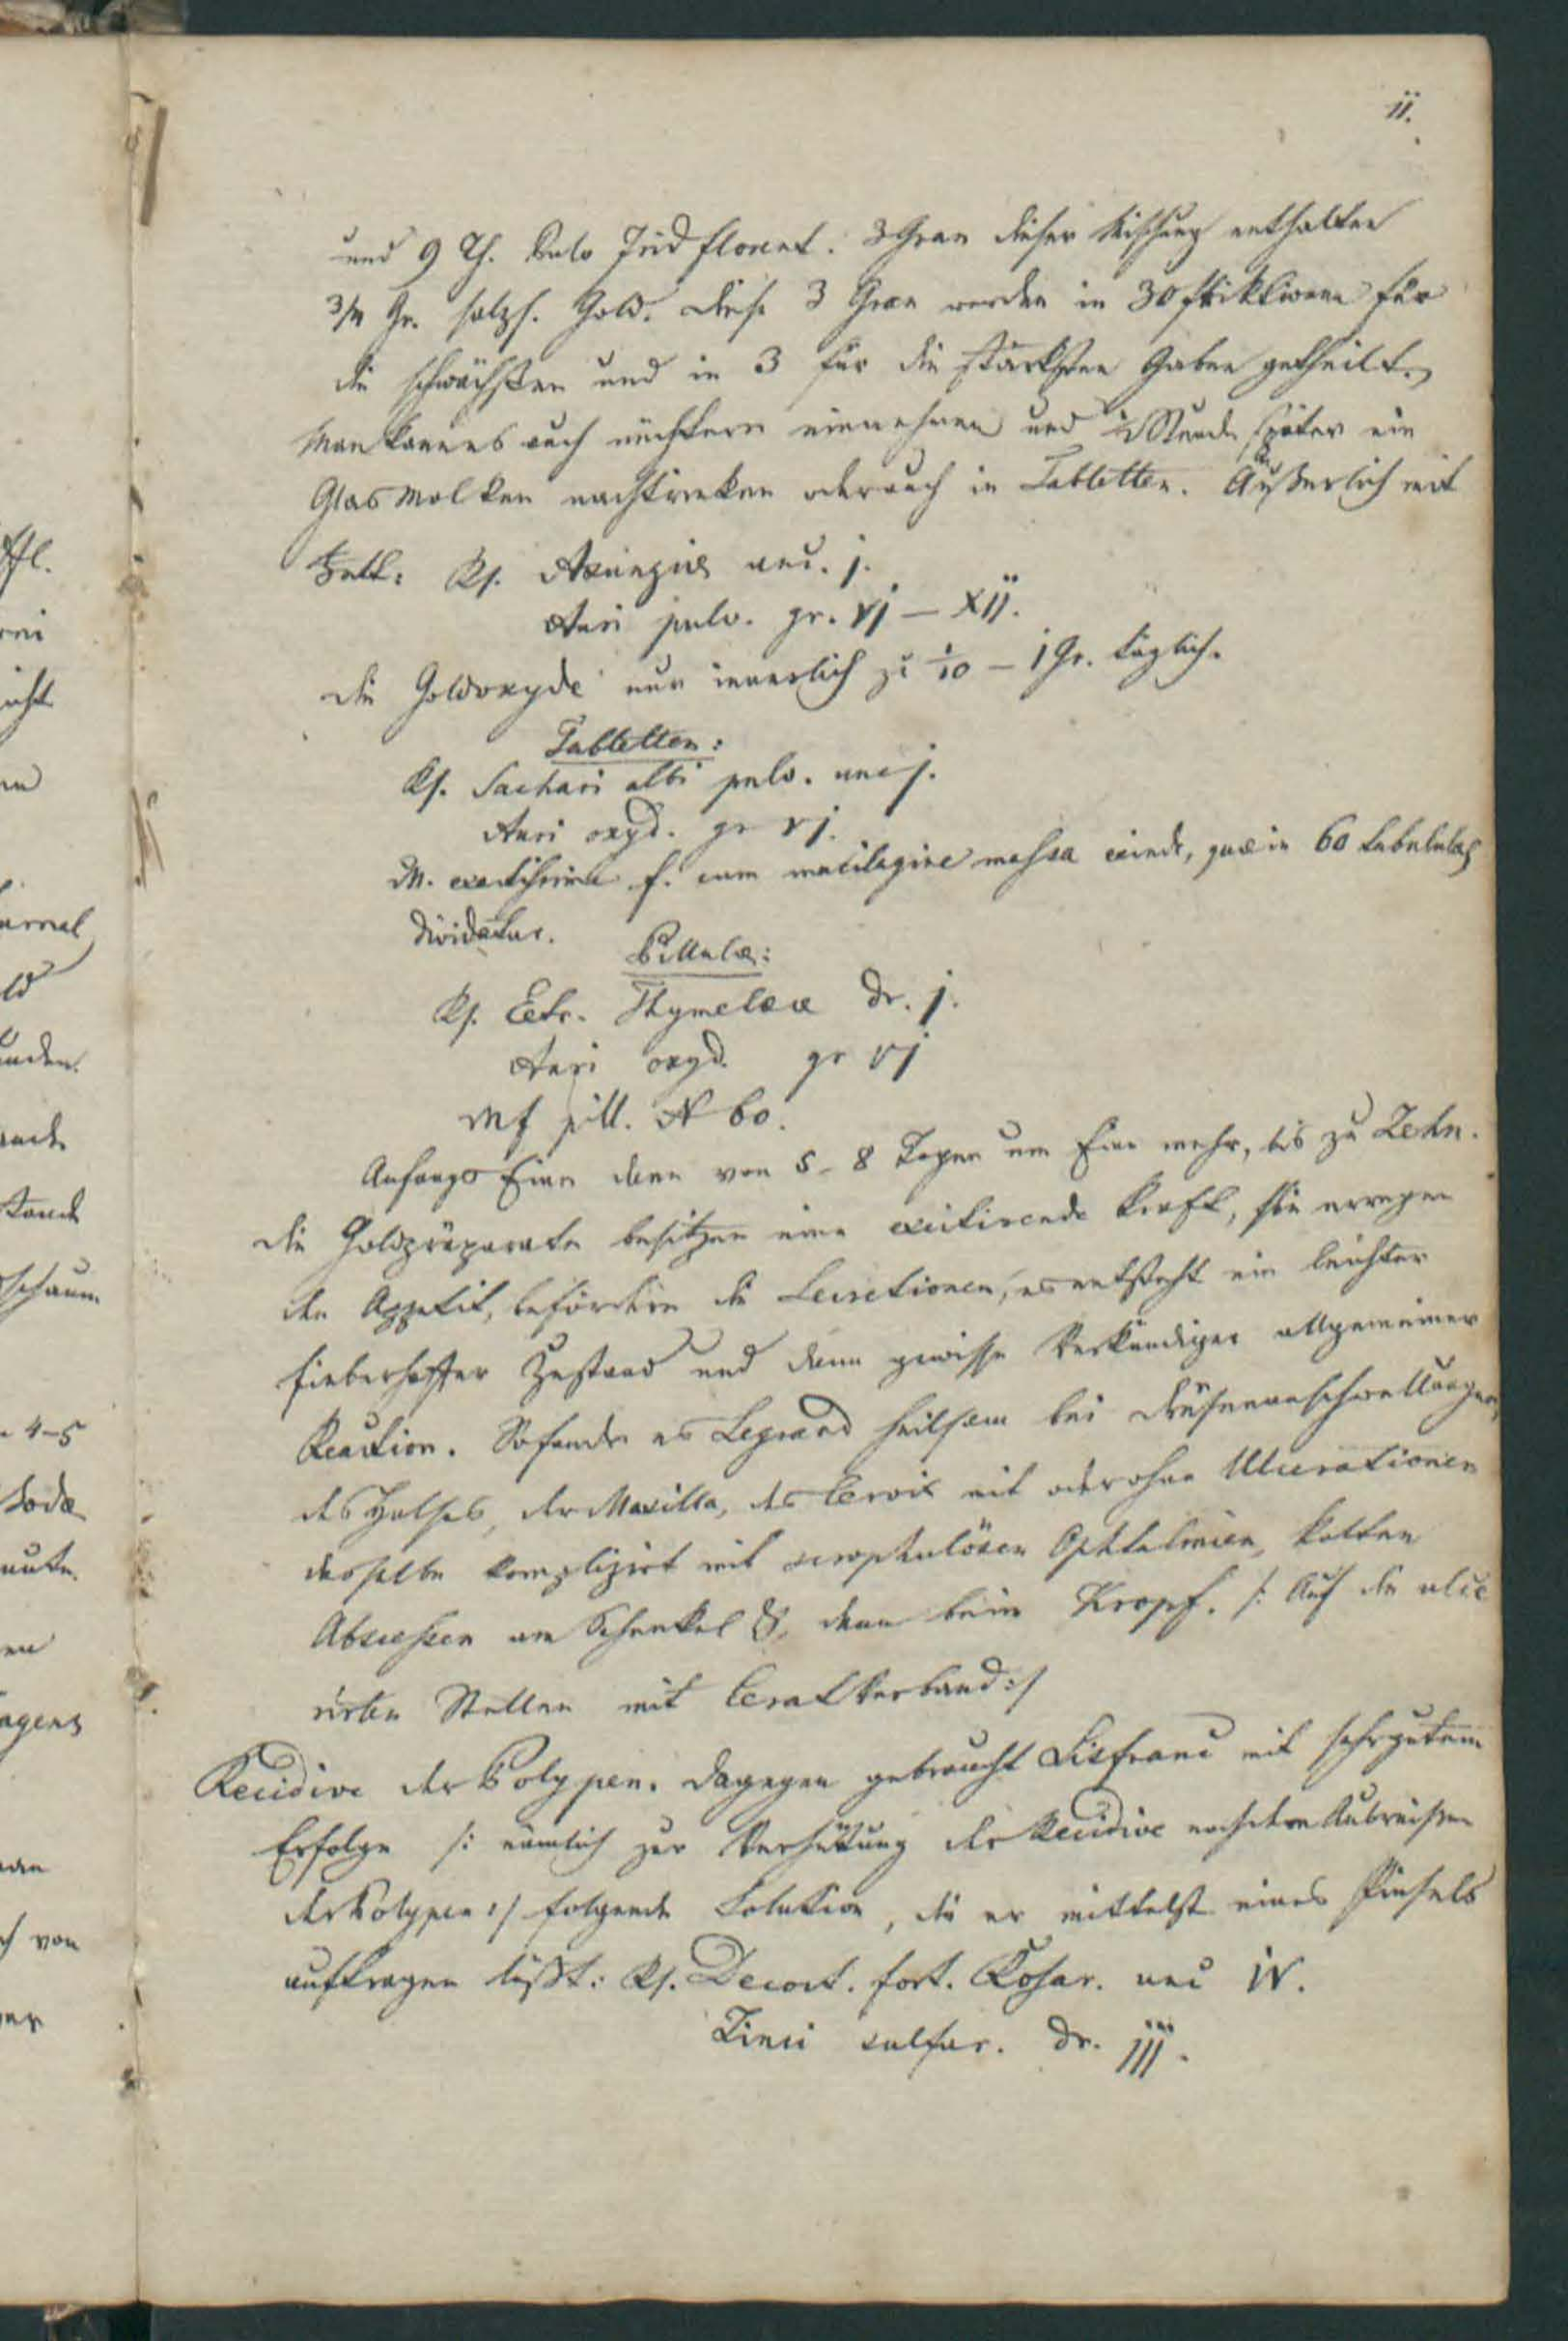 11.
und 9 Th. Pulv Irid florent. 3 Gran dieser Mischung enthalten
Gr. salzs. Gold. Diese 3 Gran werden in 30 Friktionen für
die schwächsten und in 3 für die stärksten Gaben getheilt.
Man kann es auch nüchtern einnehmen und ½ Stunde später ein
Glas Molken nachtrinken oder auch in Tabletten. Äußerlich mit
Fett: Rp. Axungiae unc. j.
Auri pulv. gr. vj – xij.
Die Goldoxyde nur innerlich zu 1/10 – 1 Gr. täglich.
Tabletten:
Rp. Sachari albi pulv. unc j.
Auri oxyd. gr vj.
M. exactissime f. cum mucilagine massa exinde, quae in 60 tabulas
dividatur.
Pillulae:
Rp. Extr. Thymeleae dr. j.
Auri oxyd. gr vj
Mf pill. N 60.
Anfangs Eine dann von 5 - 8 Tagen um Eine mehr, bis zu Zehn.
Die Goldpräparate besitzen eine excitirende Kraft, sie erregen
den Appetit, befördern die Secretionen, es entsteht ein leichter
fieberhafter Zustand und dann gewisse Verkündiger allgemeiner
Reaction. So fand es Legrand heilsam bei Drüsenanschwellungen,
des Halses, der Maxilla, des Cervix mit oder ohne Ulcerationen
derselben komplizirt mit scrophulösen Ophtalmien, kalten
Abscessen am Schenkel &, dann beim Kropf. /: Auf die ulce
rirten Stellen mit Ceratverband :/
Recidive der Polypen. Dagegen gebraucht Lisfranc mit sehr gutem
Erfolge /: nämlich zur Verhütung der Recidive nach dem Ausreißen
der Polypen :/ folgende Solution, die er mittelst eines Pinsels
auftragen läßt: Rp. Decoct. fort. Rosar. unc iv.
Zinci sulfur. dr. iij.